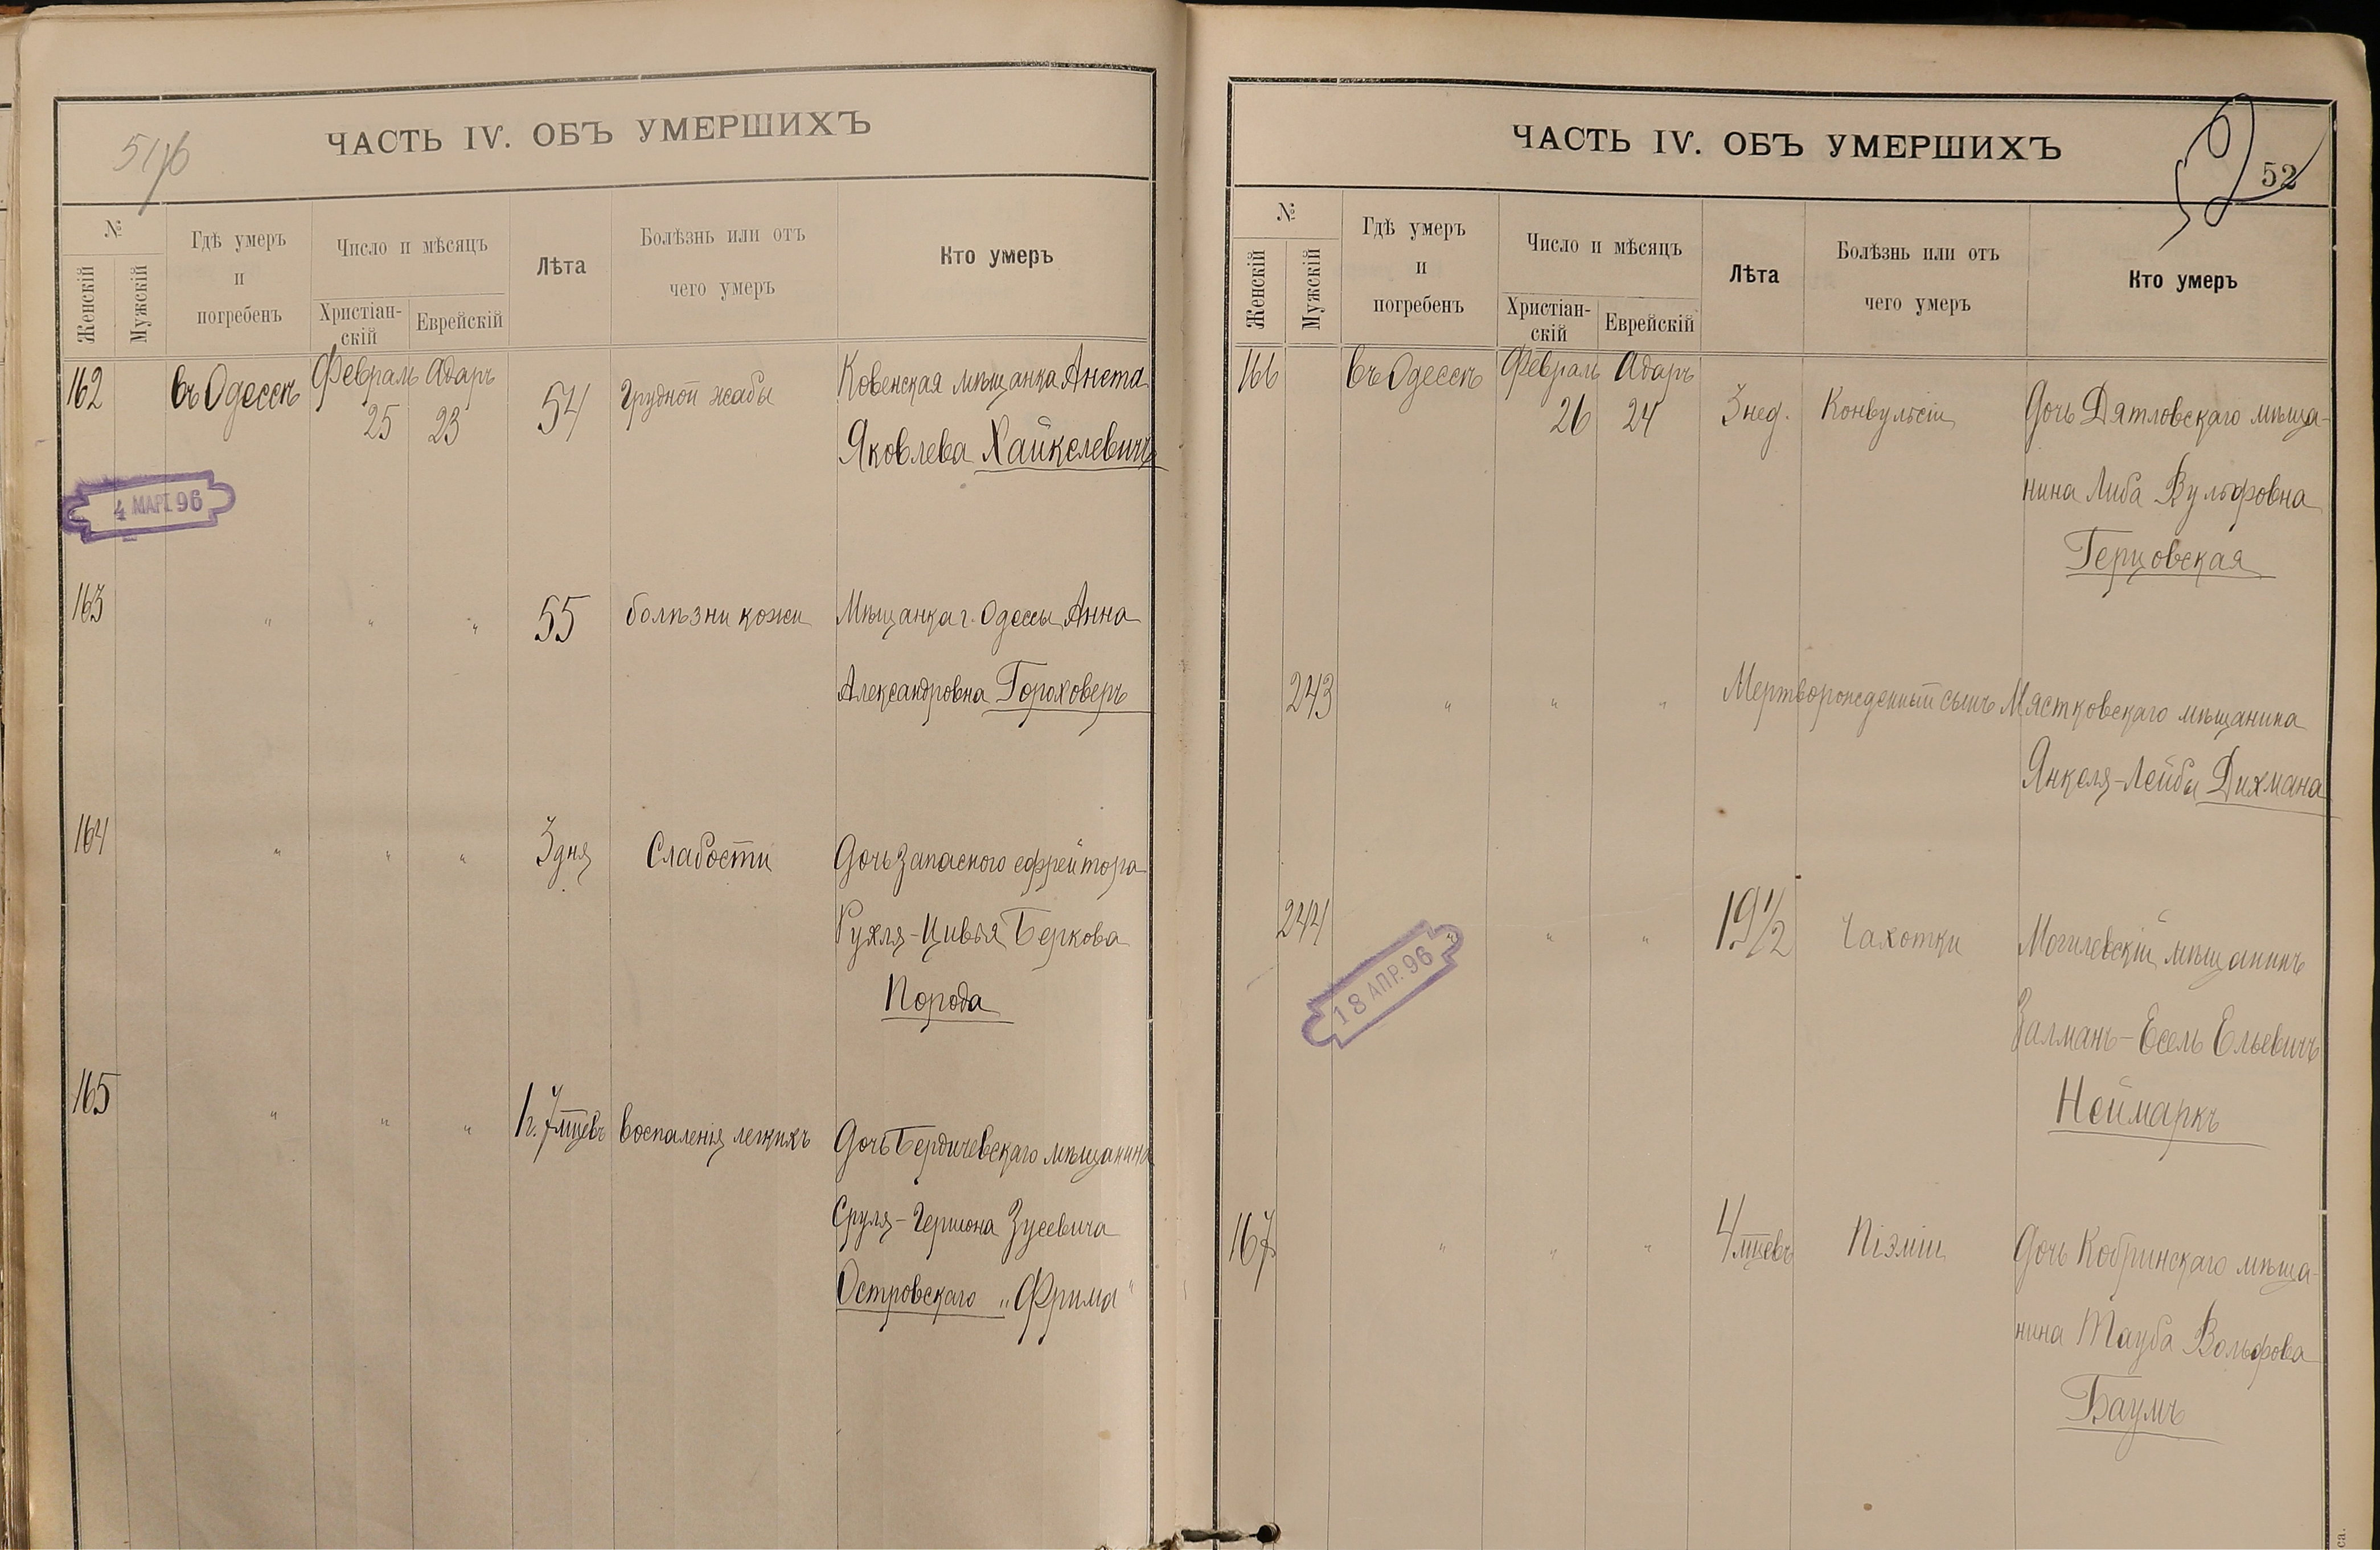 51/96
ЧАСТЬ IV. ОБЪ УМЕРШИХЪ
№
Женскій
Мужскій
Гдѣ умеръ
и
погребенъ
Число и мѣсяцъ
Христіан-
скій
Еврейскій
Лѣта
Болѣзнь или отъ
чего умеръ
Кто умеръ
162 въ Одессѣ Февраль Адаръ 54 грудной жабы Ковенская мѣщанка Анета
25 23
Яковлева Хайкелевичъ
4 МАРТ. 96
163 " " " 55 болѣзни кожи Мѣщанка г. Одессы Анна
Александровна Гороховеръ
164 " " " 3 дня Слабости Дочь запасного ефрейтора
Рухля-Цивья Беркова
Порода
165 " " " 1 г. 7 мцевъ воспаленія легкихъ Дочь Бердичевскаго мѣщанина
Сруля-Гершона Зусевича
Островскаго „Фрима"
ЧАСТЬ IV. ОБЪ УМЕРШИХЪ
52
52
№
Женскій
Мужскій
Гдѣ умеръ
и
погребенъ
Число и мѣсяцъ
Христіан-
скій
Еврейскій
Лѣта
Болѣзнь или отъ
чего умеръ
Кто умеръ
166 въ Одессѣ Февраль Адаръ
26 24 3 нед. Конвульсіи Дочь Дятловскаго мѣща-
нина Либа Вульфовна
Герцовская
243 " " " Мертворожденный сынъ Мястковскаго мѣщанина
Янкеля-Лейбы Дихмана
244 " " " 19 1/2 Чахотки Могилевскій мѣщанинъ
18 АПР. 96
Залманъ-Есель Ельевичъ
Неймаркъ
167 " " " 4 мцевъ Піэміи Дочь Кобринскаго мѣща-
нина Тауба Вольфова
Баумъ
са.